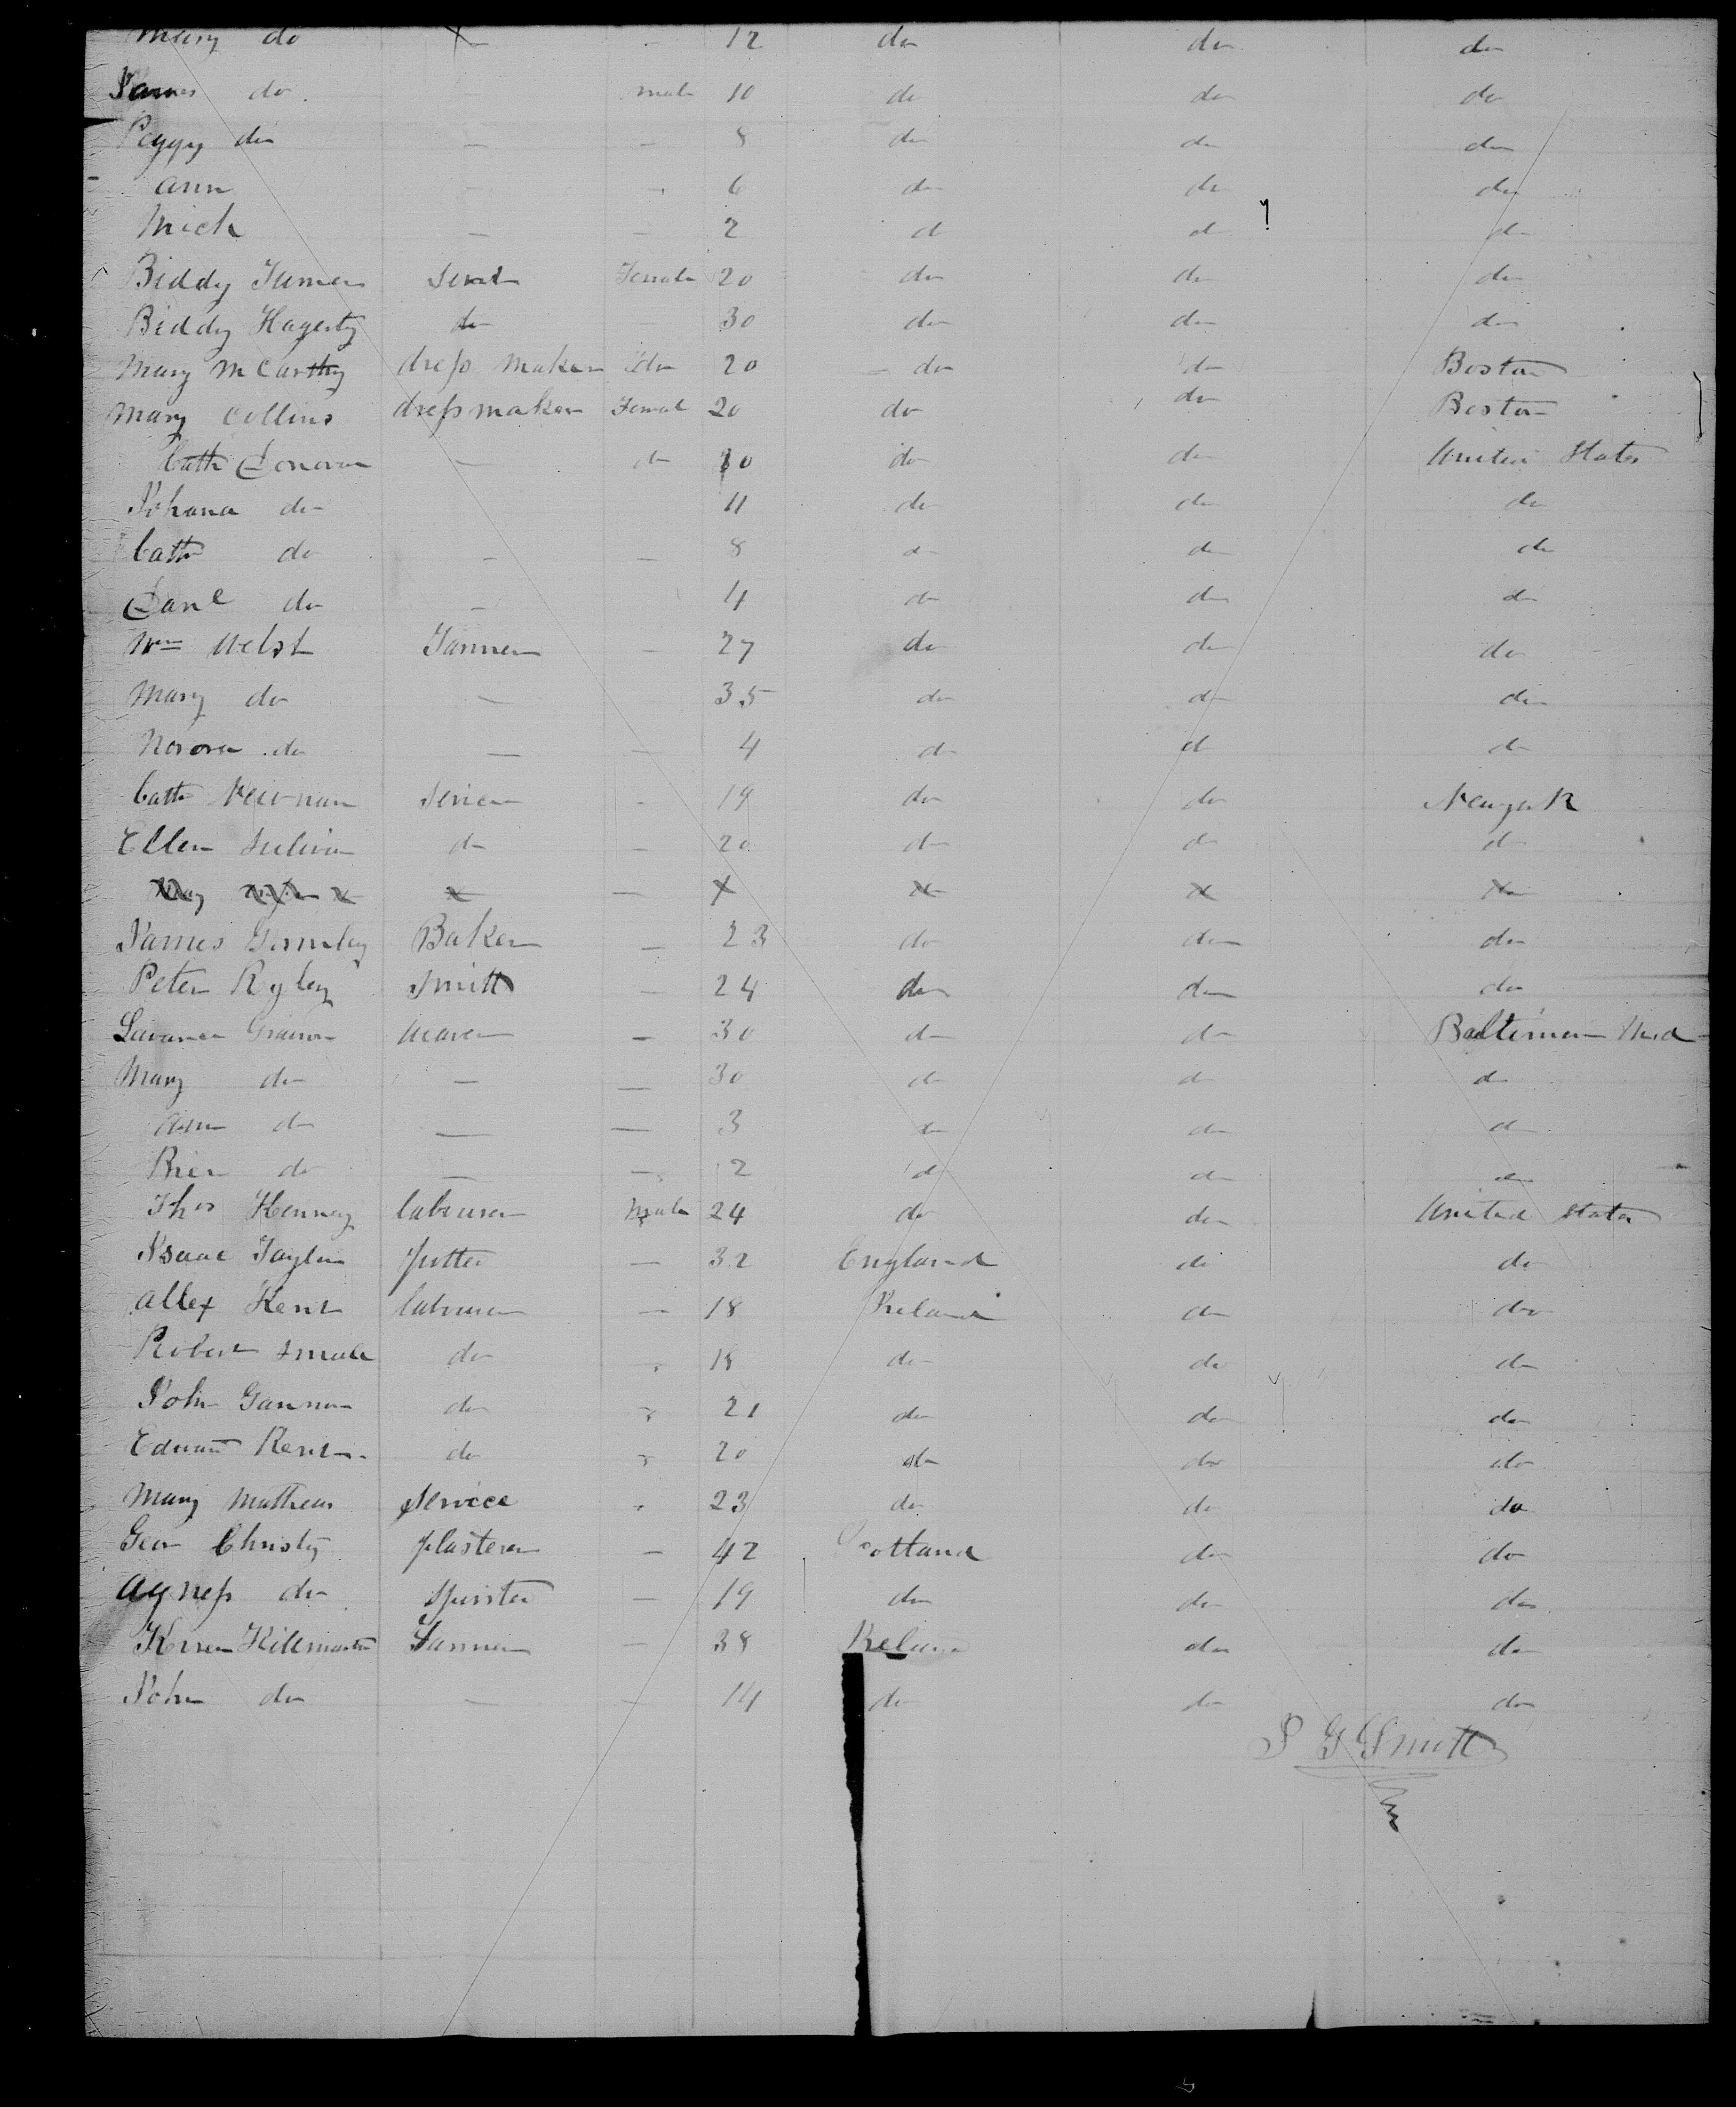 Mary do - 12 do do do
James do male 10 do do do
Peggy do - - 8 do do do
Ann - - 6 do do do
Mick - - 2 do do do
Biddy Female 20 do do do
Biddy Hagerty do - 30 do do do
Mary McCarthy dress maker do 20 do do Boston
Mary Collins dress maker Female 20 do do Boston
Cath Donovan - do do do United States
Johana do 11 do do do
Cath do - - 8 do do do
Danl do - 4 do do do
Wm Welsh Farmer - 27 do do do
Mary do - 35 do do do
Norora do - - 4 do do do
Cath Newnan - 19 do do Newyork
Ellen Sulivan do - 20 do do do
James Gormley Baker - 23 do do do
Peter Ryley Smith - 24 do do do
- 30 do do Baltimore Md
Mary do - - 30 do do do
Ann do - - 3 do do do
do - - 2 do do do
Thos Kenney labourer Male 24 do do United States
Isaac Taylor potter - 32 England do do
Allex Kent labourer - 18 Ireland do do
Robert Smale do - 18 do do do
John Gannon do - 21 do do do
Edward Kent do - 20 do do do
Mary Mathews Service - 23 do do do
Geor Christy plasterer - 42 Scotland do do
Agness do Spinster - 19 do do do
Farmer - 38 Ireland do do
John do - - 14 do do do
P G Smith